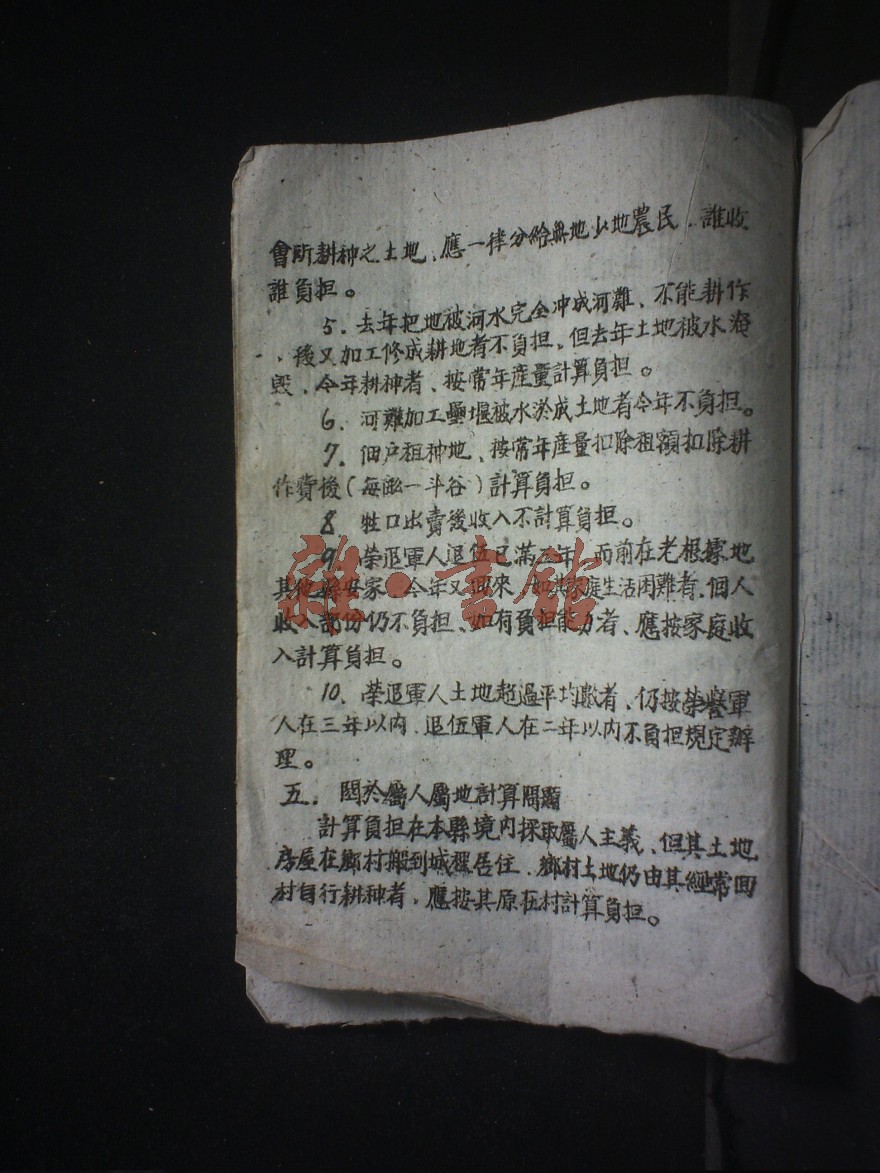 會所耕种之土地、應一律分給無地少地農民、誰收
誰負担。
5. 去年把地被河水完全冲成河難、不能耕作
、後又加工修成耕地者不負担、但去年土地被水
毀、今年耕神者、按常年産量計算負担。
6. 河難加工壘堰被水淤成土地者今年不負担。
7. 佃户租种地、按常年産量扣除租額扣除耕
作費後(每畝一斗谷)計算負担。
8 牲口出賣後收入不計算負担。
9 榮退軍人退伍已滿 年、而前在老根據地
其他縣安家、今年又迴來、如其家庭生活困難者、個人
收入部份仍不負担、如有負担能力者、應按家庭收
入計算負担。
10、榮退軍人土地超過平均畝者、仍按榮譽軍
人在三年以内、退伍軍人在二年以内不負担規定辦
理。
五. 関於屬人屬地計算問題
計算負担在本縣境内採取屬人主義、但其土地
房屋在鄉村搬到城裡居住、鄉村土地仍由其經常回
村自行耕种者、應按其原在村計算負担。
雜·書館